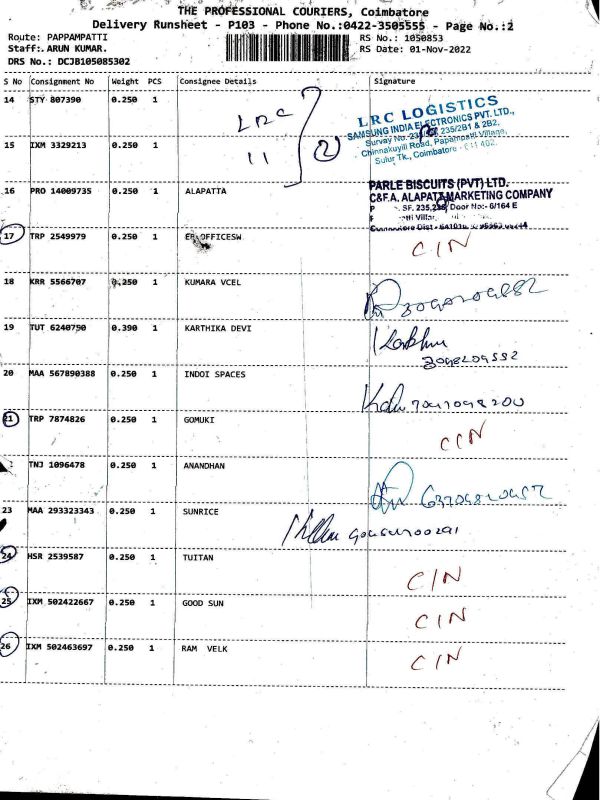 THE PROFESSIONAL COURIERS, Coimbatore
Delivery Runsheet - P103 - Phone No.:0422-3505555 - Page No.:2
Route: PAPPAMPATTI RS No.: 1050853
Staff:. ARUN KUMAR. RS Date: 01-Nov-2022
DRS No.: DCJB105085302
S No Consignment No Weight PCS Consignee Details Signature
14 STY 807390 0.250 1 LRC LRC LOGISTICS
SAMSUNG INDIA ELECTRONICS PVT. LTD.,
235/2B1 & 2B2,
Chinnakuyili Road, Papampatti Village,
Sulur Tk., Coimbatore
15 IXM 3329213 0.250 1 11 2
16 PRO 14009735 0.250 1 ALAPATTA PARLE BISCUITS (PVT) LTD.
C&F.A. ALAPATT MARKETING COMPANY
SF. 235,236, Door No:- 6/164 E
17 TRP 2549979 0.250 1 EP OFFICESW CIN
18 KRR 5566707 0.250 1 KUMARA VCEL
19 TUT 6240790 0.390 1 KARTHIKA DEVI
20 MAA 567890388 0.250 1 INDOI SPACES
21 TRP 7874826 0.250 1 GOMUKI CIN
TNJ 1096478 0.250 1 ANANDHAN
23 MAA 293323343 0.250 1 SUNRICE
24 HSR 2539587 0.250 1 TUITAN CIN
25 IXM 502422667 0.250 1 GOOD SUN CIN
26 IXM 502463697 0.250 1 RAM VELK CIN